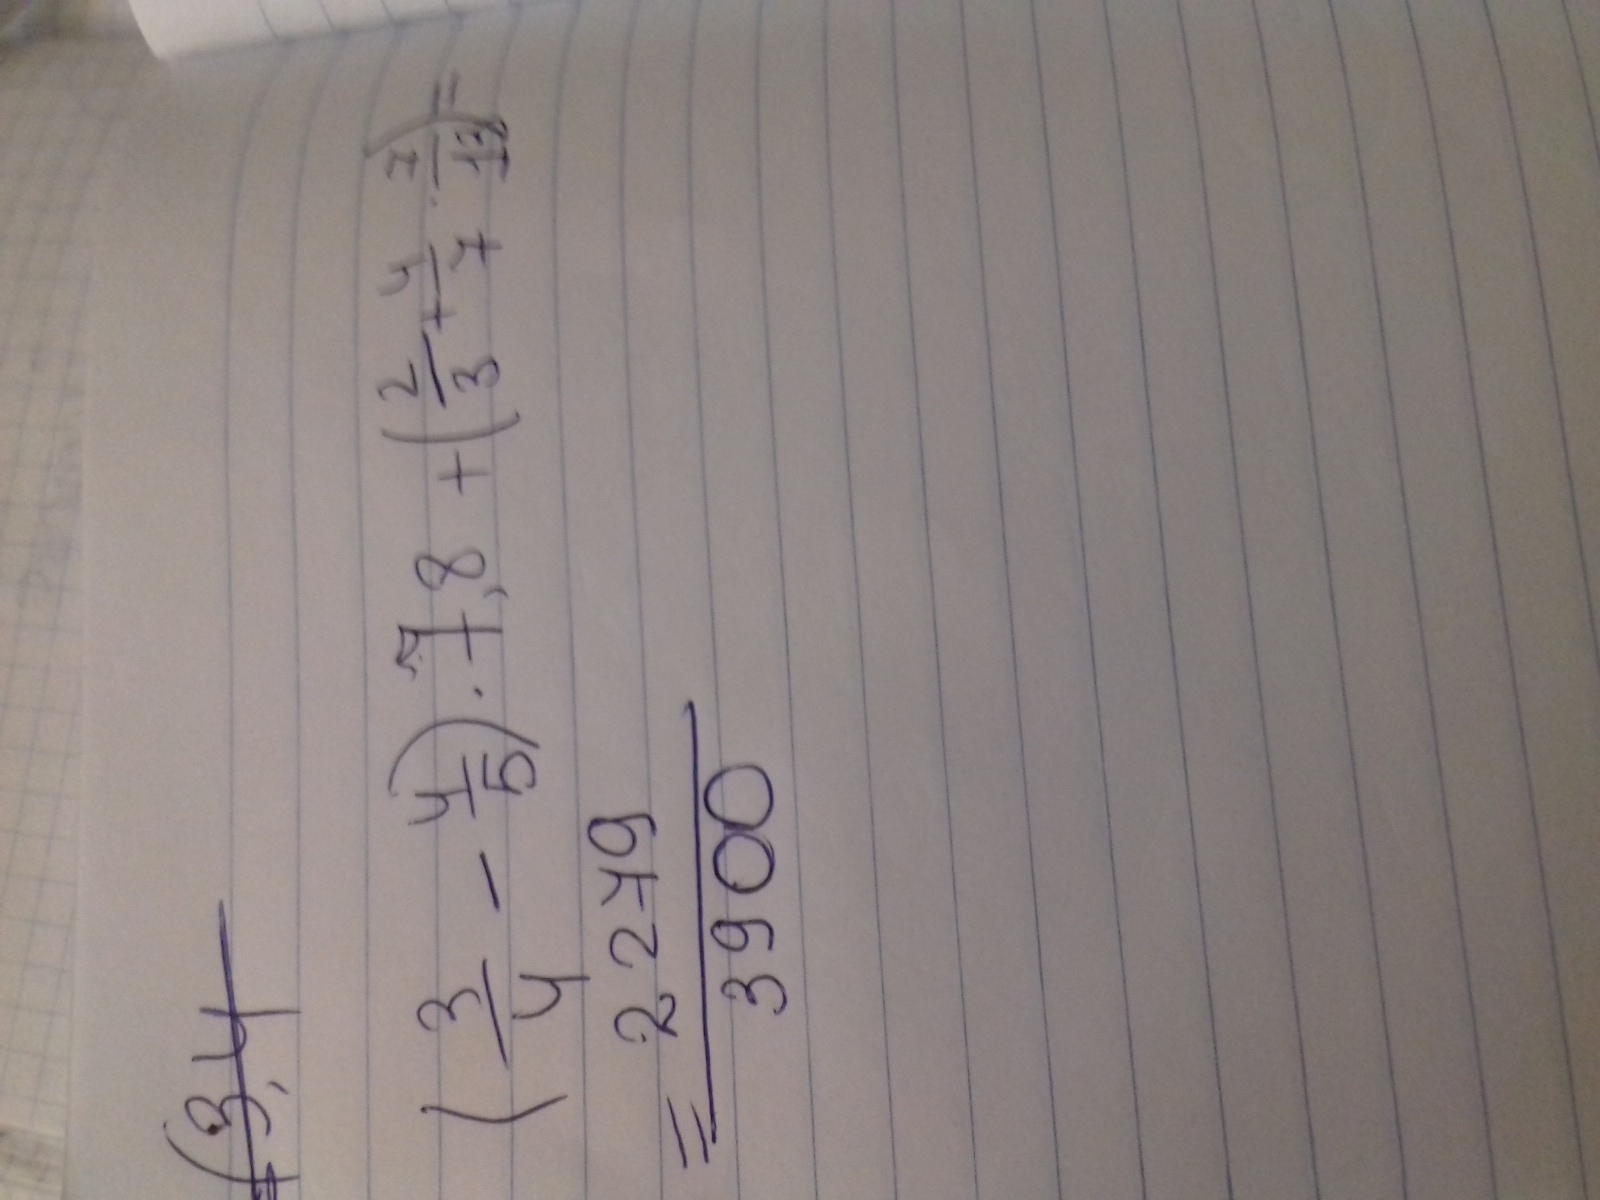 = (3,4
(3/4 - 4/5) · 7,8 + (2/3 + 4/7 · 7/13) =
= 2279/3900